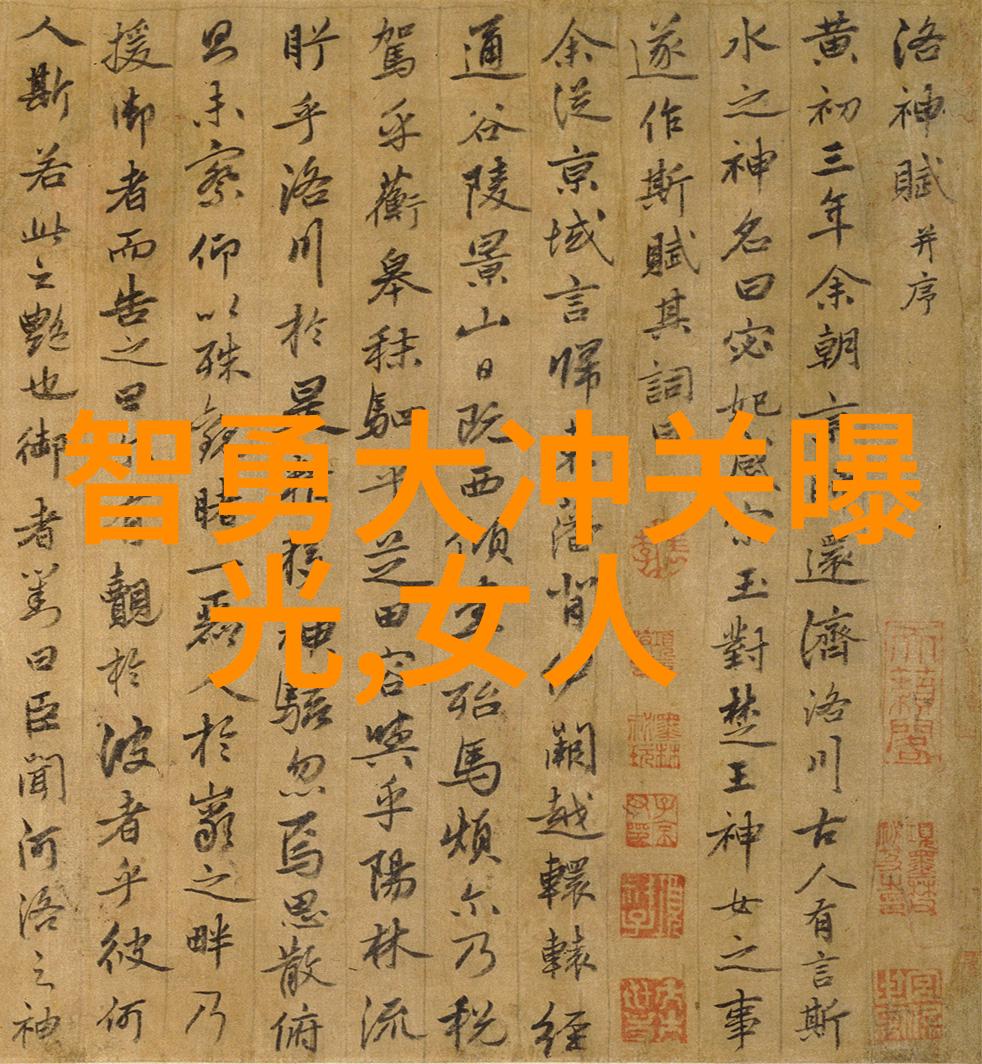 智勇大冲关曝
光,女人
洛神賦并序
黄初三年余朝京還濟洛川古人有言斯
水之神名曰宓妃感宋玉對楚王神女之事
遂作斯賦其詞曰
余從京域言歸東藩背伊闕越轘轅經
通谷陵景山日既西傾車殆馬煩尒乃税
駕乎蘅皋秣駟乎芝田容與乎陽林流
眄乎洛川於是精移神駭忽焉思散俯
未察仰以殊觀睹一麗人於巖之畔乃
援御者而告之曰有覿於彼者乎彼何
人斯若此之艷也御者對曰臣聞河洛之神